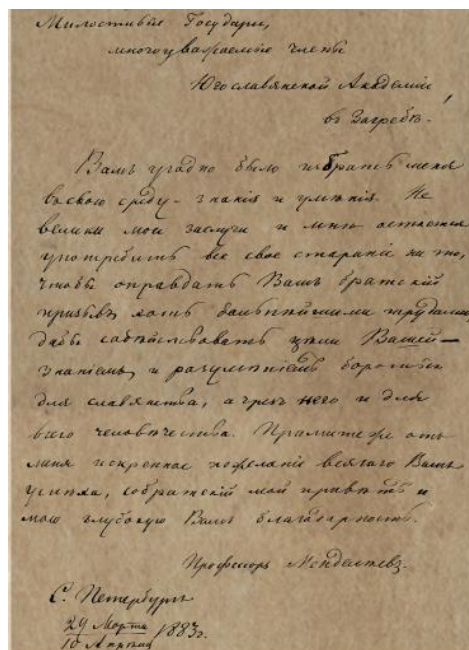 Милостивые Государи,
многоуважаемые члены
Югославянской Академіи
въ Загребѣ!
Вамъ угодно было избрать меня
въ свою среду - знанія и умѣнія. Не
велики мои заслуги и мнѣ остается
употребить все свое стараніе на то,
чтобы оправдать Вашъ братскій
призывъ хоть дальнѣйшими трудами,
дабы содѣйствовать цѣли Вашей —
знаніемъ и разумѣніемъ бороться
для славянства, а чрезъ него и для
всего человѣчества. Примите же отъ
меня искреннее пожеланіе всякаго Вамъ
успѣха, собратскій мой привѣтъ и
мою глубокую Вамъ благодарность.
Профессоръ Менделѣевъ.
С. Петербургъ
29 Марта
10 Апрѣля 1883 г.